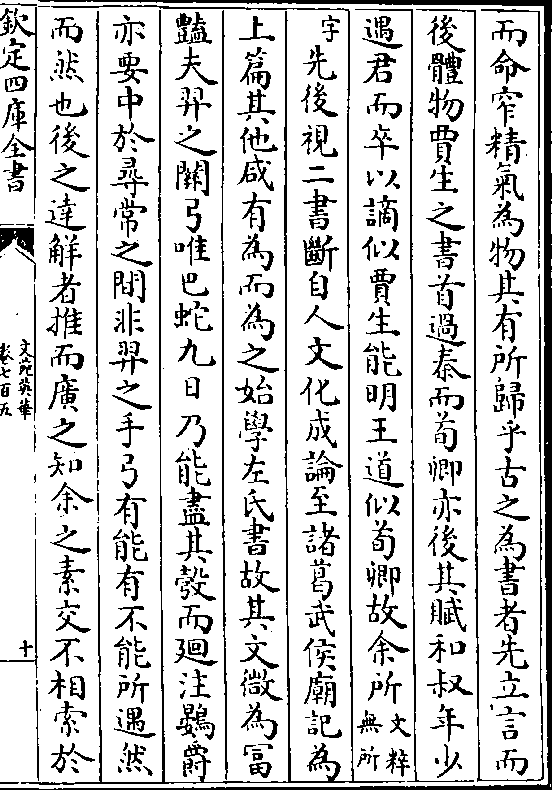 而命窄精氣為物其有所歸乎古之為書者先立言而
後體物賈生之書首過秦而荀卿亦後其賦和叔年少
遇君而卒以謫似賈生能明王道似荀卿故余所文粹無所
字先後視二書斷自人文化成論至諸葛武侯廟記為
上篇其他咸有為而為之始學左氏書故其文微為富
豔夫羿之關弓唯巴蛇九日乃能盡其彀而廻注鷃爵
亦要中於尋常之間非羿之手弓有能有不能所遇然
而然也後之達解者推而廣之知余之素交不相索於
欽定四庫全書
文苑英華
卷七百五
十